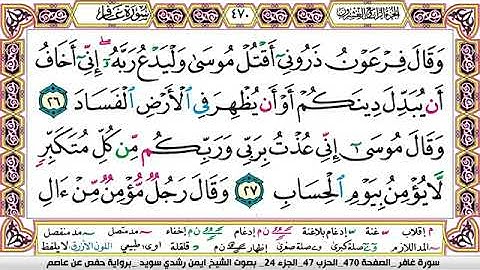 سورة غافر ٤٧٠ الجزء الرابع والعشرون
وَقَالَ فِرْعَوْنُ ذَرُونِيٓ أَقْتُلْ مُوسَىٰ وَلْيَدْعُ رَبَّهُۥٓ ۖ إِنِّيٓ أَخَافُ
أَن يُبَدِّلَ دِينَكُمْ أَوْ أَن يُظْهِرَ فِي ٱلْأَرْضِ ٱلْفَسَادَ ٢٦
وَقَالَ مُوسَىٰٓ إِنِّي عُذْتُ بِرَبِّي وَرَبِّكُم مِّن كُلِّ مُتَكَبِّرٍ
لَّا يُؤْمِنُ بِيَوْمِ ٱلْحِسَابِ ٢٧ وَقَالَ رَجُلٌ مُّؤْمِنٌ مِّنْ ءَالِ
م إقلاب س غنة إدغام بلاغنة ن م إدغام ن م إخفاء مد متصل مد منفصل
المد اللازم صلة كبرى صلة صغرى إظهار قلقلة أوى طبيعي اللون الأزرق لا يلفظ
سورة غافر_الصفحة 470 الحزب 47_الجزء 24_ بصوت الشيخ ايمن رشدي سويد_برواية حفص عن عاصم